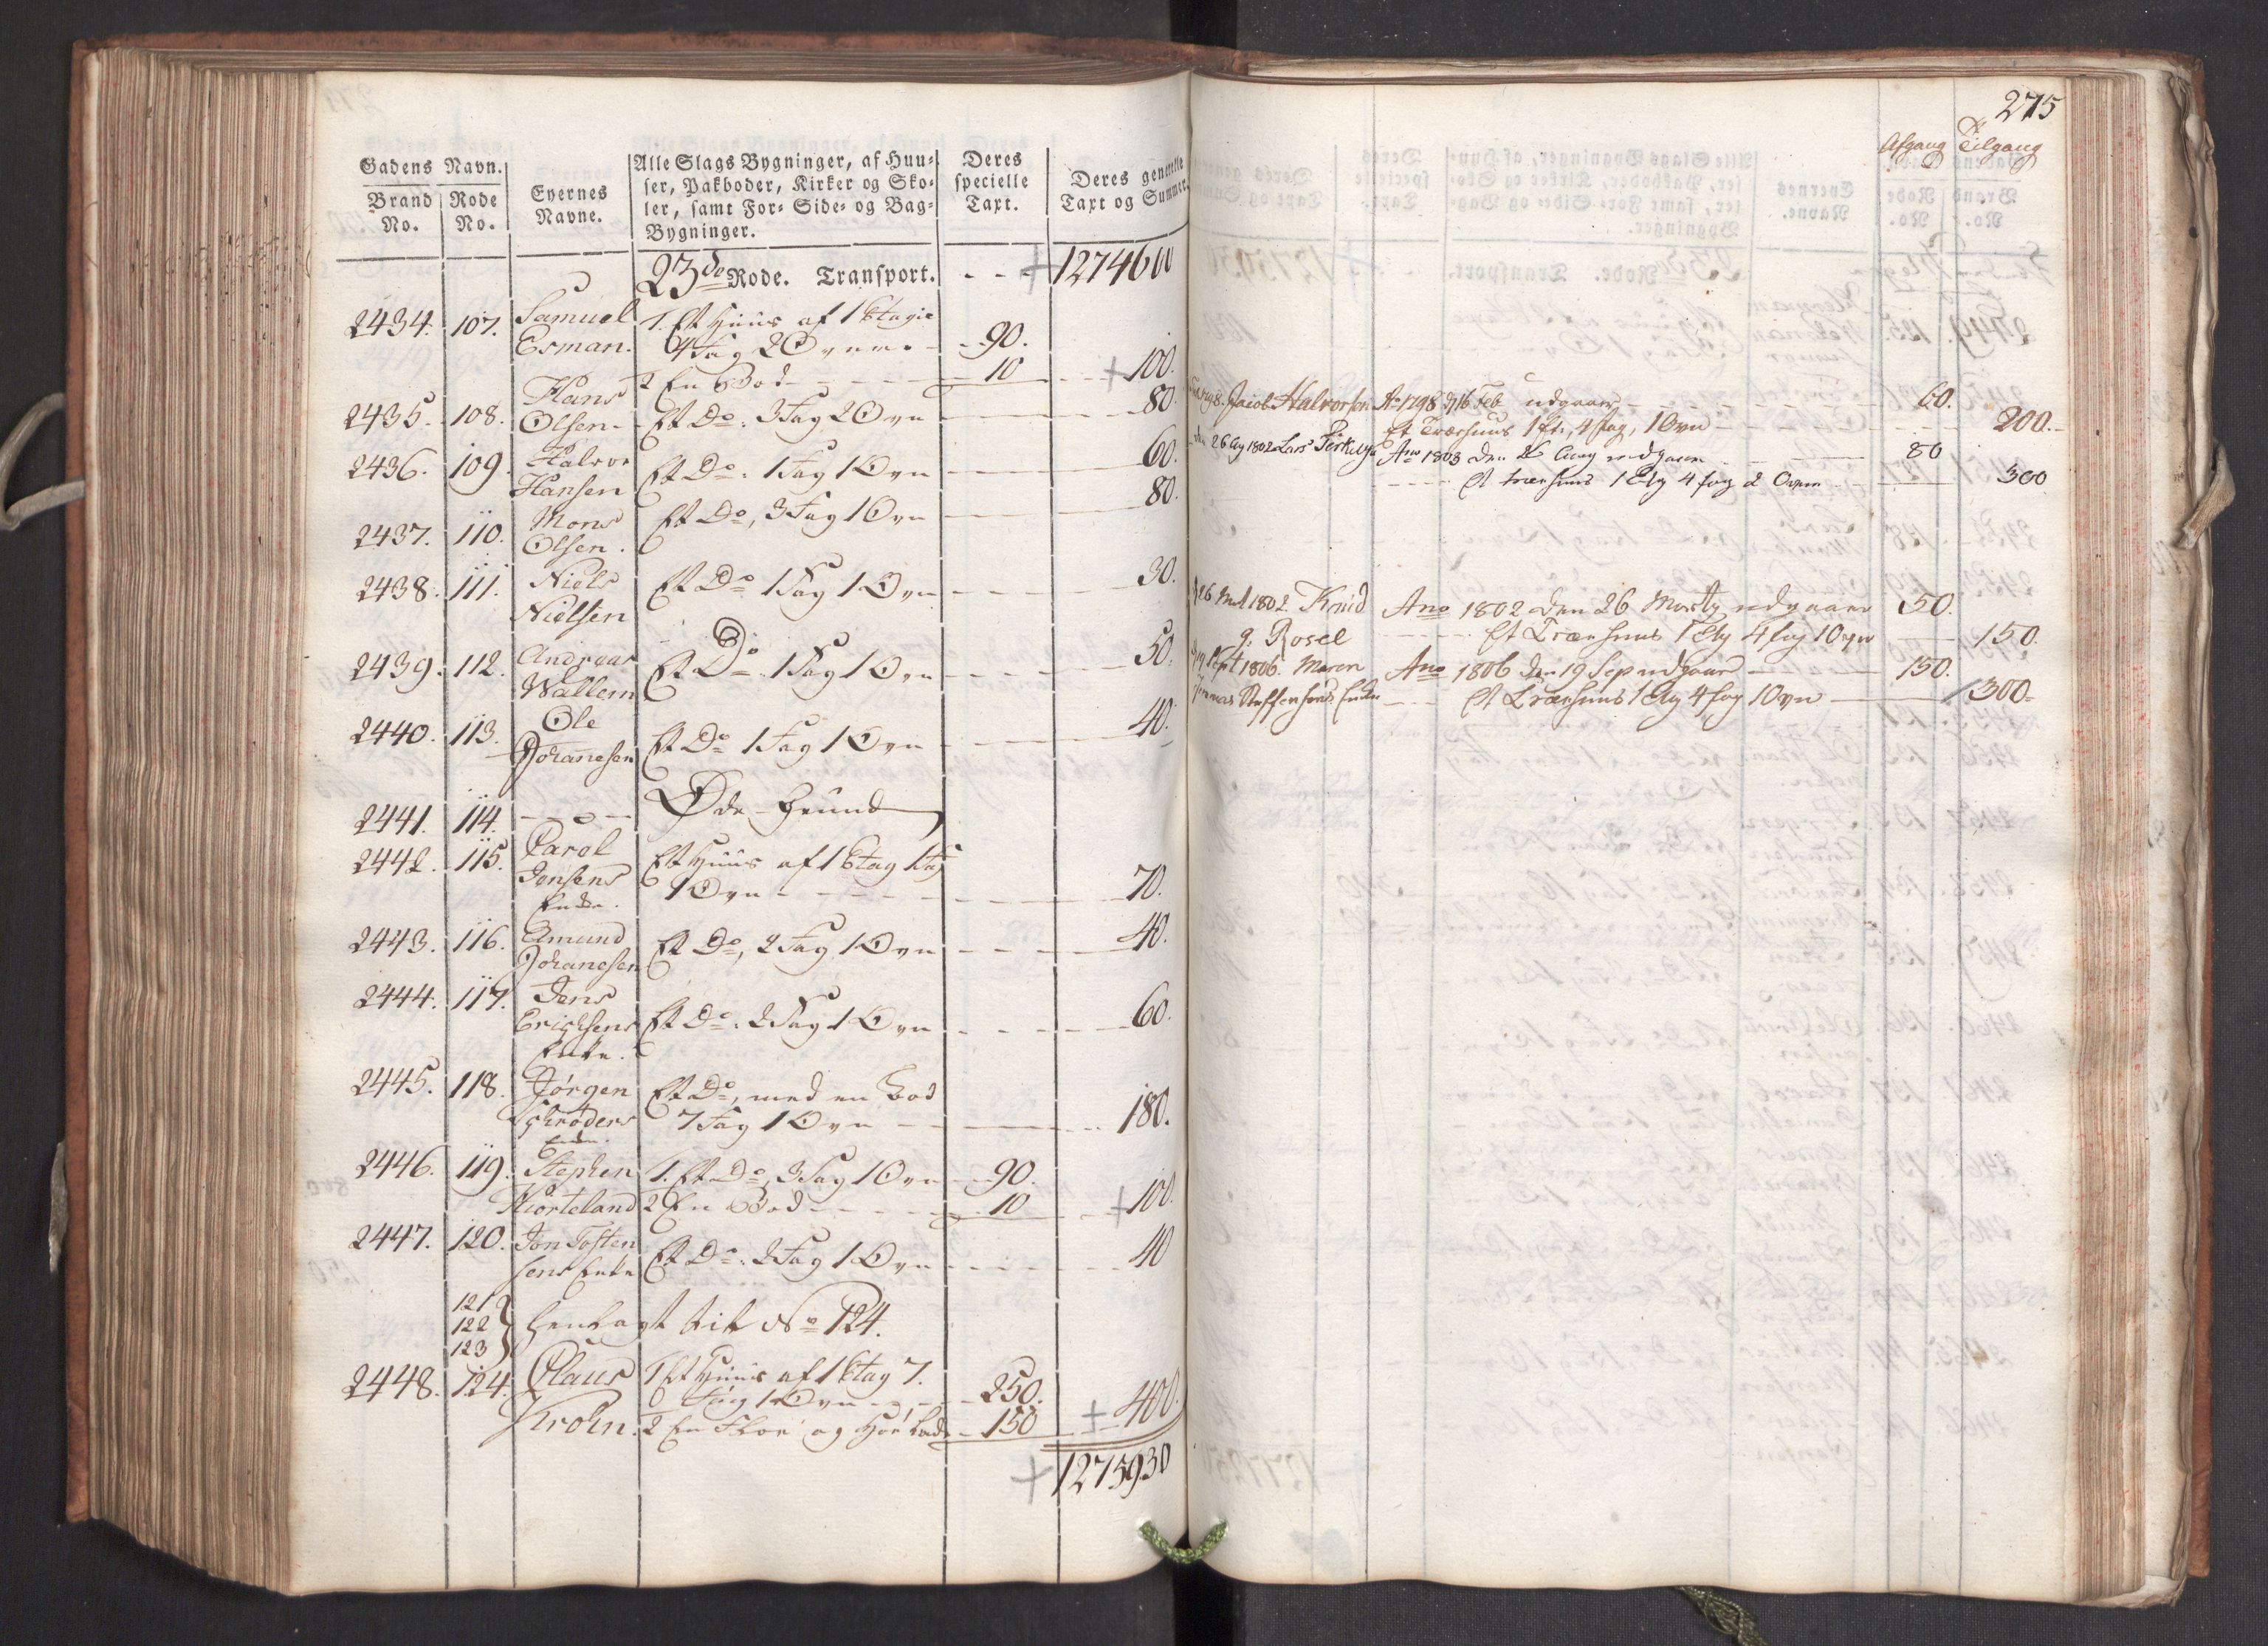 Gadens Navn.
Brand No.
Rode No.
Eyernes Navne.
Alle Slags Bygninger, af Huu-
ser, Pakboder, Kirker og Sko-
ler, samt For- Side- og Bag-
Bygninger.
Deres specielle Taxt.
Deres generelle Taxt og Summer.
23de Rode. Transport. - - - + 1274600
2434. 107. Samuel 1. Et Huus af 1 Etagie
Esman. 4 Fag 2 Ovne - 90.
2 En Bod - - - 10 + 100.
2435. 108. Hans Olsen. Et Do. 3 Fag 2 Ovn 80.
2436. 109. Halvor Hansen Et Do. 1 Fag 1 Ovn 60.
2437. 110. Mons Olsen. Et Do, 3 Fag 1 Ovn 80.
2438. 111. Niels Nielsen Et Do 1 Fag 1 Ovn 30.
2439. 112. Andreas Wallem Et Do. 1 Fag 1 Ovn 50.
2440. 113. Ole Johannesen Et Do 1 Fag 1 Ovn 40.
2441. 114. - o - Øde Grund
2442. 115. Carol Et Huus af 1 Etag 1 Fag
Jensens 1 Ovn - - - 70.
Enke.
2443. 116. Amund Johanesen Et Do, 2 Fag 1 Ovn 40.
2444. 117. Jens
Erichsens Et Do. 2 Fag 1 Ovn 60.
Enke.
2445. 118. Jørgen Et Do, med en Bod
Schrøders 7 Fag 1 Ovn 180.
Enke.
2446. 119. Stephen 1. Et Do, 3 Fag 1 Ovn 90.
Kiorteland 2 En Bod - - - 10 + 100.
2447. 120. Jon Tosten
sens Enke Et Do. 2 Fag 1 Ovn 40
121
122 henlagt til No 124.
123
2448. 124. Claus 1 Et Huus af 1 Etag 7.
Fag 1 Ovn - 250.
Krohn. 2 En Floe og Høe Lade 150 + 400.
+ 1275930
275
Afgang Tilgang
1798. Jacob Halvorsen Ao 1798 d 16 Feb udgaaer 60.
Et Træehuus 1 Et, 4 fag, 1 Ovn 200.
den 26 Aug 1802 Lars Ano 1803 den 26 Aug udgaaer 80
Et træehuus 1 Etg 4 fag 2 Ovne 300
26 Mart 1802. Knud Ano 1802 den 26 Marty udgaaer 50.
g. Rosel Et Træehuus 1 Etg 4 fag 1 Ovn 150.
19 Sept 1806. Maren Ano 1806 den 19 Sep udgaaer 150.
Steffensens Enke Et Træehuus 1 Etg 4 fag 1 Ovn 300.